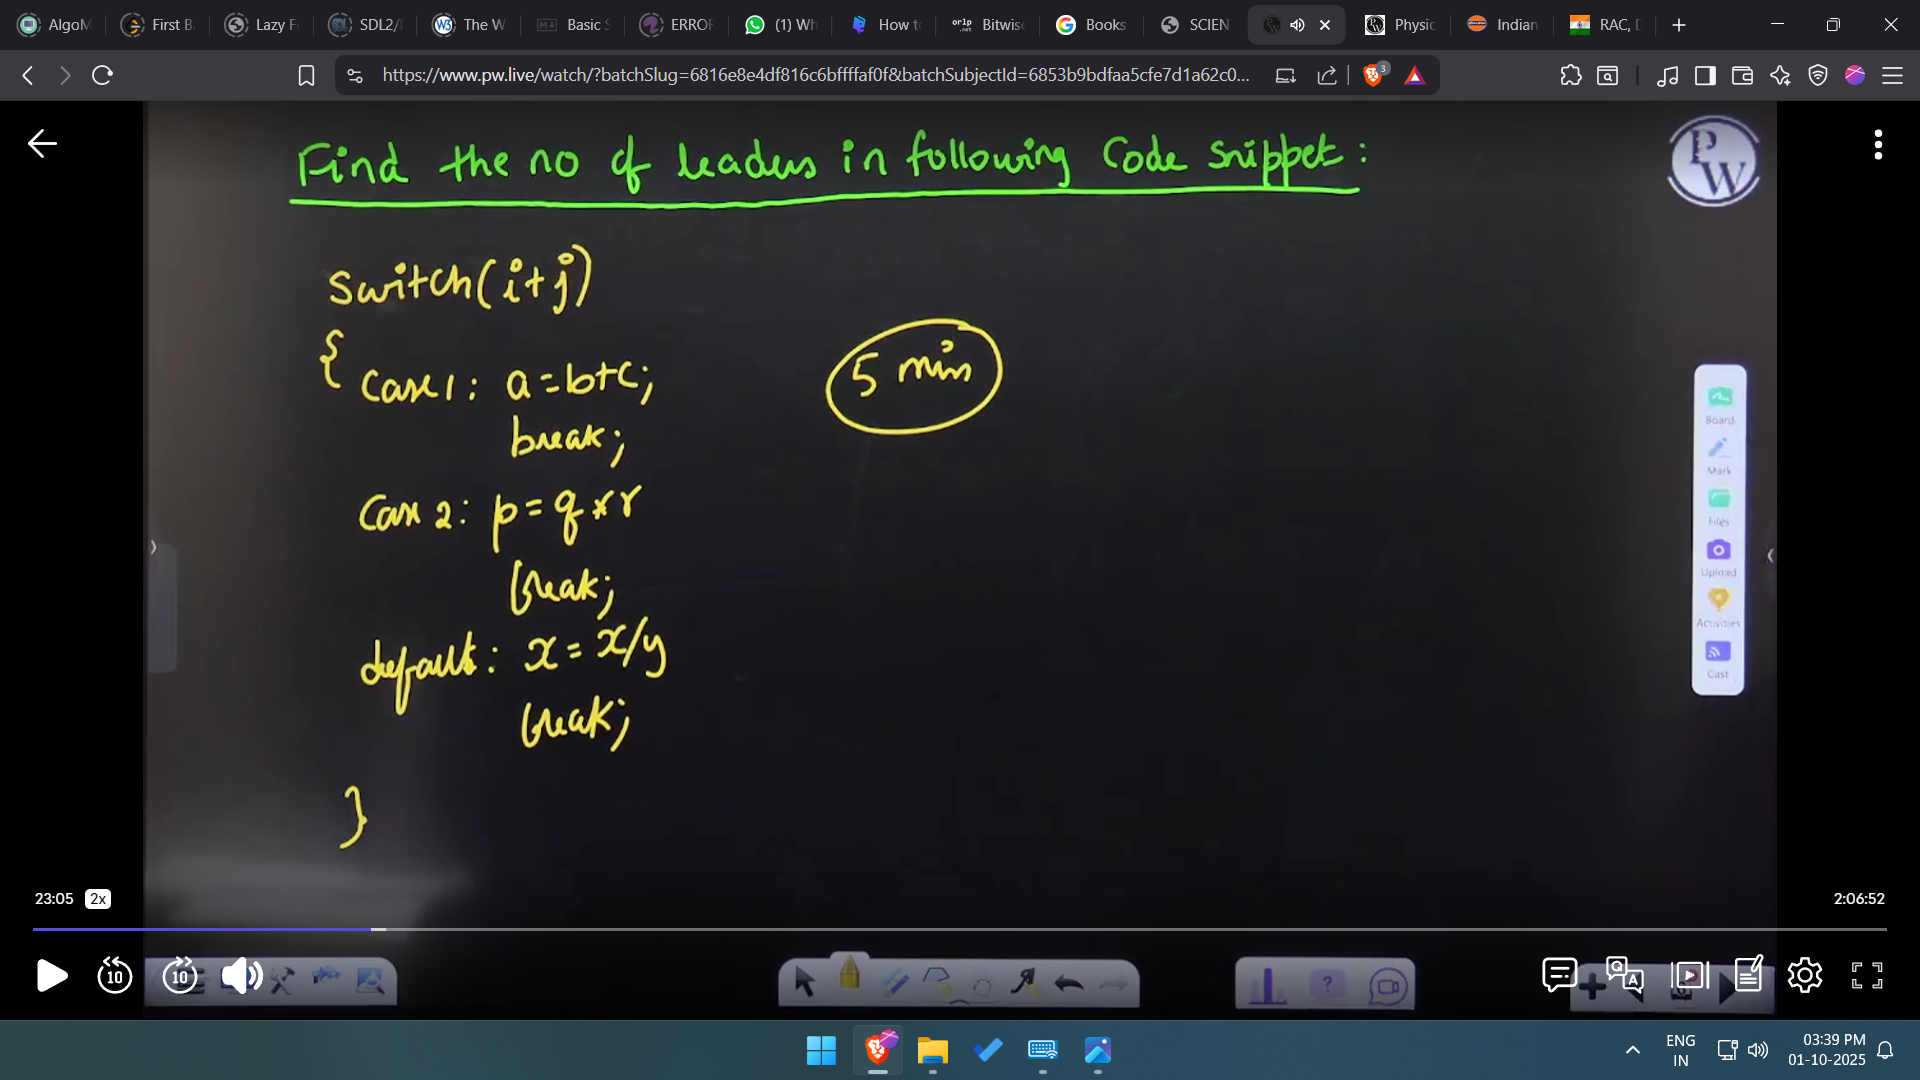 AlgoM
First B
Lazy F
SDL2/
The W
Basic S
ERROR
(1) Wh
How to
Bitwise
Books
SCIEN
Physic
Indian
RAC, D
https://www.pw.live/watch/?batchSlug=6816e8e4df816c6bffffaf0f&batchSubjectId=6853b9bdfaa5cfe7d1a62c0...
3
Find the no of leaders in following Code snippet:
PW
switch(i+j)
{
Case 1: a=b+c;
break;
5 min
Case 2: p=q*r
break;
default: x=x/y
break;
}
Board
Mark
Files
Upload
Activities
Cast
23:05 2x
2:06:52
10
10
ENG
IN
03:39 PM
01-10-2025